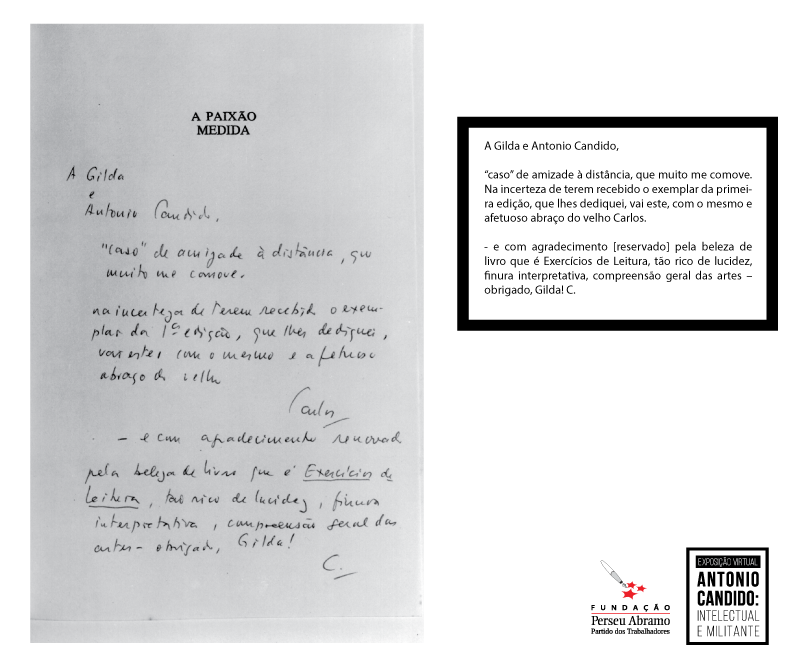 A PAIXÃO
MEDIDA
A Gilda
e
Antonio Candido,
"caso" de amizade à distância, que
muito me comove.
na incerteza de terem recebido o exem-
plar da 1ª edição, que lhes dediquei,
vai este, com o mesmo e afetuoso
abraço do velho
Carlos
– e com agradecimento renovado
pela beleza de livro que é Exercícios de
Leitura, tão rico de lucidez, finura
interpretativa, compreensão geral das
artes – obrigado, Gilda!
C.
A Gilda e Antonio Candido,
“caso” de amizade à distância, que muito me comove.
Na incerteza de terem recebido o exemplar da primei-
ra edição, que lhes dediquei, vai este, com o mesmo e
afetuoso abraço do velho Carlos.
- e com agradecimento [reservado] pela beleza de
livro que é Exercícios de Leitura, tão rico de lucidez,
finura interpretativa, compreensão geral das artes –
obrigado, Gilda! C.
FUNDAÇÃO
Perseu Abramo
Partido dos Trabalhadores
EXPOSIÇÃO VIRTUAL
ANTONIO
CANDIDO:
INTELECTUAL
E MILITANTE